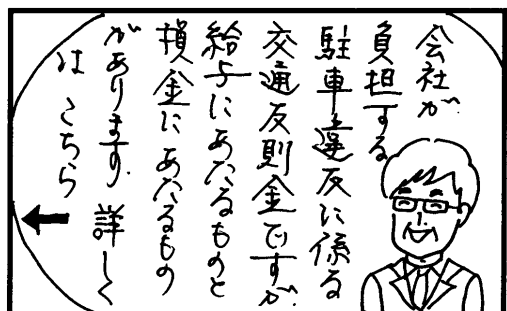 会社が
負担する
駐車違反に係る
交通反則金ですが
給与にあたるものと
損金にあたるもの
があります。詳しく
はこちら